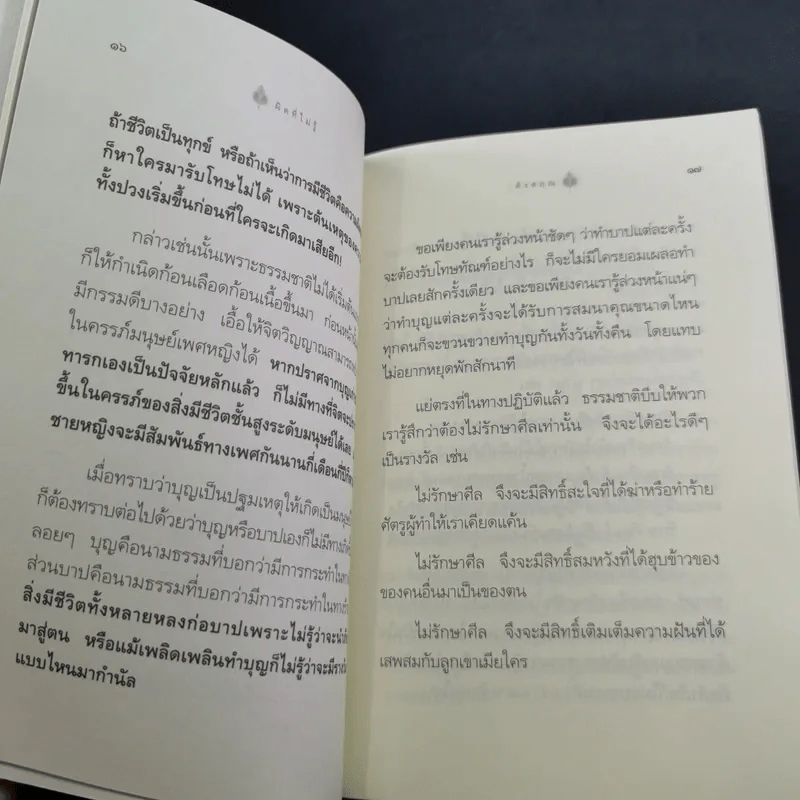 ๑๖
ผิดที่ไม่รู้
ถ้าชีวิตเป็นทุกข์ หรือถ้าเห็นว่าการมีชีวิตคือความ
ก็หาใครมารับโทษไม่ได้ เพราะต้นเหตุของ
ทั้งปวงเริ่มขึ้นก่อนที่ใครจะเกิดมาเสียอีก!
กล่าวเช่นนั้นเพราะธรรมชาติไม่ได้เริ่มต้น
ก็ให้กำเนิดก้อนเลือดก้อนเนื้อขึ้นมา ก่อนหน้านั้น
มีกรรมดีบางอย่าง เอื้อให้จิตวิญญาณสามารถ
ในครรภ์มนุษย์เพศหญิงได้ หากปราศจากบุญ
ทารกเองเป็นปัจจัยหลักแล้ว ก็ไม่มีทางที่จิตจะ
ขึ้นในครรภ์ของสิ่งมีชีวิตชั้นสูงระดับมนุษย์ได้เลย
ชายหญิงจะมีสัมพันธ์ทางเพศกันนานกี่เดือนกี่ปีก็
เมื่อทราบว่าบุญเป็นปฐมเหตุให้เกิดเป็นมนุษย์
ก็ต้องทราบต่อไปด้วยว่าบุญหรือบาปเองก็ไม่มีทาง
ลอยๆ บุญคือนามธรรมที่บอกว่ามีการกระทำใน
ส่วนบาปคือนามธรรมที่บอกว่ามีการกระทำใน
สิ่งมีชีวิตทั้งหลายหลงก่อบาปเพราะไม่รู้ว่าจะ
มาสู่ตน หรือแม้เพลิดเพลินทำบุญก็ไม่รู้ว่าจะมี
แบบไหนมากำนัล
๑๗
ขอเพียงคนเรารู้ล่วงหน้าชัดๆ ว่าทำบาปแต่ละครั้ง
จะต้องรับโทษทัณฑ์อย่างไร ก็จะไม่มีใครยอมเผลอทำ
บาปเลยสักครั้งเดียว และขอเพียงคนเรารู้ล่วงหน้าแน่ๆ
ว่าทำบุญแต่ละครั้งจะได้รับการสมนาคุณขนาดไหน
ทุกคนก็จะขวนขวายทำบุญกันทั้งวันทั้งคืน โดยแทบ
ไม่อยากหยุดพักสักนาที
แย่ตรงที่ในทางปฏิบัติแล้ว ธรรมชาติบีบให้พวก
เรารู้สึกว่าต้องไม่รักษาศีลเท่านั้น จึงจะได้อะไรดีๆ
เป็นรางวัล เช่น
ไม่รักษาศีล จึงจะมีสิทธิ์สะใจที่ได้ฆ่าหรือทำร้าย
ศัตรูผู้ทำให้เราเคียดแค้น
ไม่รักษาศีล จึงจะมีสิทธิ์สมหวังที่ได้ฮุบข้าวของ
ของคนอื่นมาเป็นของตน
ไม่รักษาศีล จึงจะมีสิทธิ์เติมเต็มความฝันที่ได้
เสพสมกับลูกเขาเมียใคร